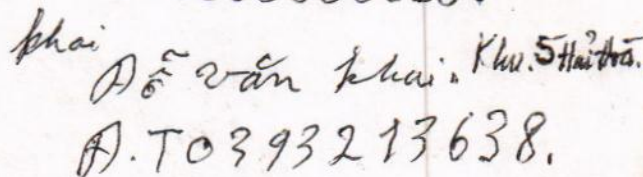 khai
Đỗ văn khai. Khu. 5 Hải Hoà.
Đ.T 0393213638.